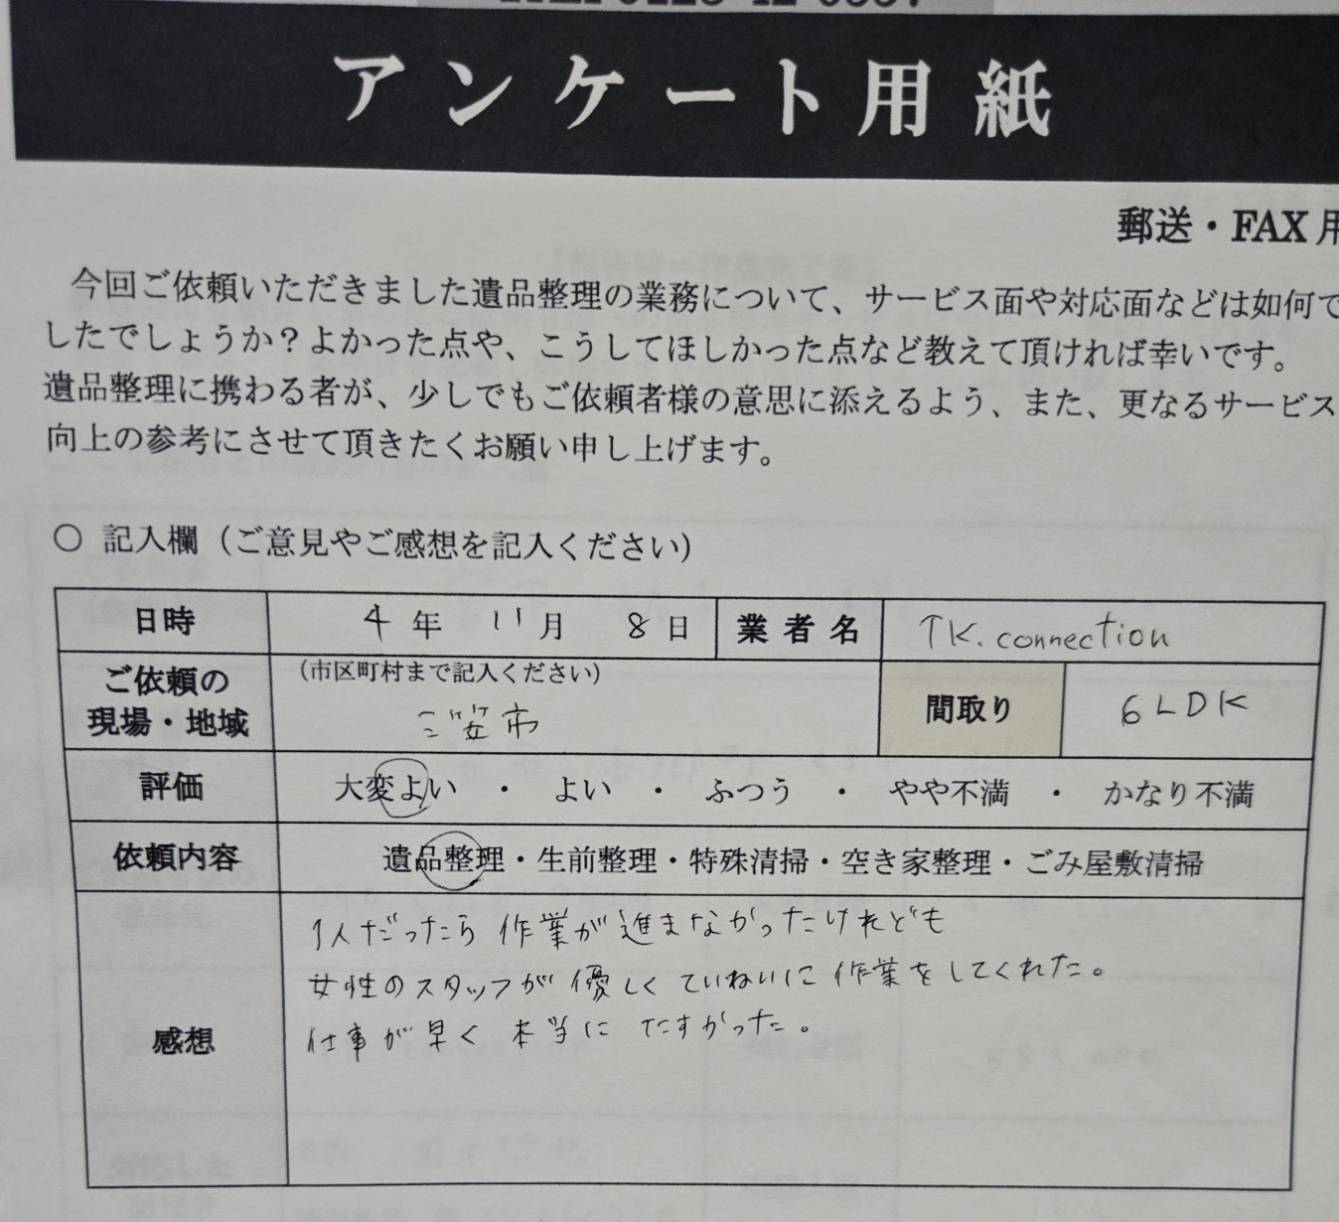 アンケート用紙
郵送・FAX用
今回ご依頼いただきました遺品整理の業務について、サービス面や対応面などは如何で
したでしょうか?よかった点や、こうしてほしかった点など教えて頂ければ幸いです。
遺品整理に携わる者が、少しでもご依頼者様の意思に添えるよう、また、更なるサービス
向上の参考にさせて頂きたくお願い申し上げます。
○ 記入欄（ご意見やご感想を記入ください）
日時 4年 11月 8日 業者名 TK.connection
ご依頼の現場・地域 (市区町村まで記入ください) 三笠市 間取り 6LDK
評価 大変よい ・ よい ・ ふつう ・ やや不満 ・ かなり不満
依頼内容 遺品整理・生前整理・特殊清掃・空き家整理・ごみ屋敷清掃
感想
1人だったら作業が進まなかったけれども
女性のスタッフが優しくていねいに作業をしてくれた。
仕事が早く本当にたすかった。